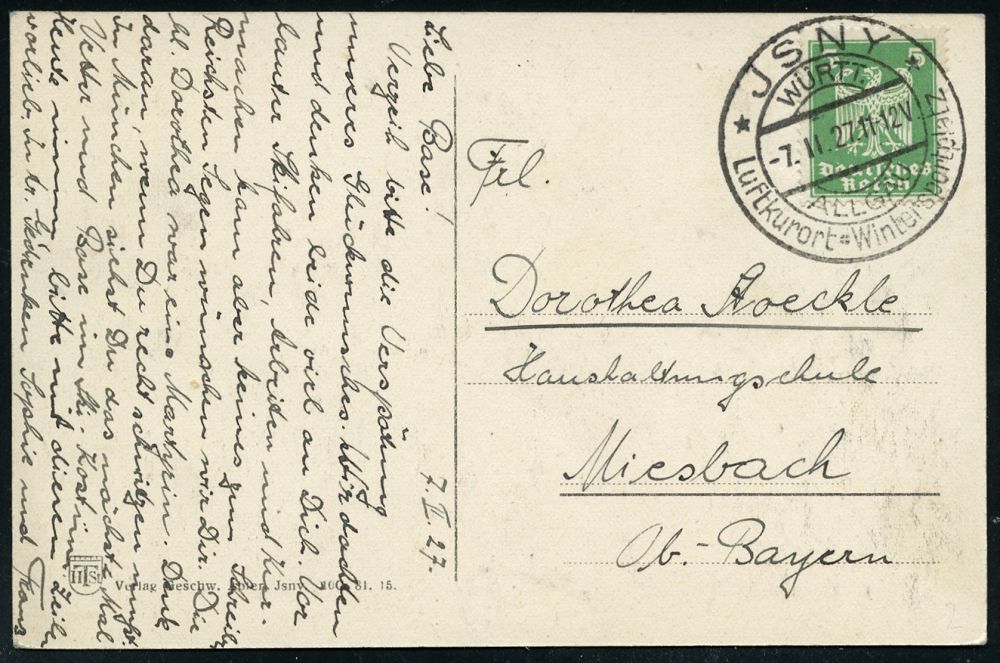 Liebe Base! 7. II. 27.
Verzeih bitte die Verspätung
unseres Glückwunsches. Wir dachten
und denken beide viel an Dich. Vor
lauter Skifahren, Arbeiten und
machen kam aber keines zum Schreib.
Reichsten Segen wünschen wir Dir. Die
hl. Dorothea war eine Martyrin. Denk
daran, wenn Du recht schwitzen mußt.
In München siehst Du das nächste Mal
Vetter und Base im Ski-Kostüm.
Heute nimm bitte mit diesen Zeilen
vorlieb. In tr. Gedenken Sophie und Franz
Frl.
Dorothea Stoeckle
Haushaltungschule
Miesbach
Ob.-Bayern
JSNY
WÜRTT.
-7.II.27.11-12V
ALLGÄU
Luftkurort=Wintersportplatz
5 5
Deutsches
Reich
HTSt
Verlag Geschw. Spieß, Jsny. 81. 15.
2